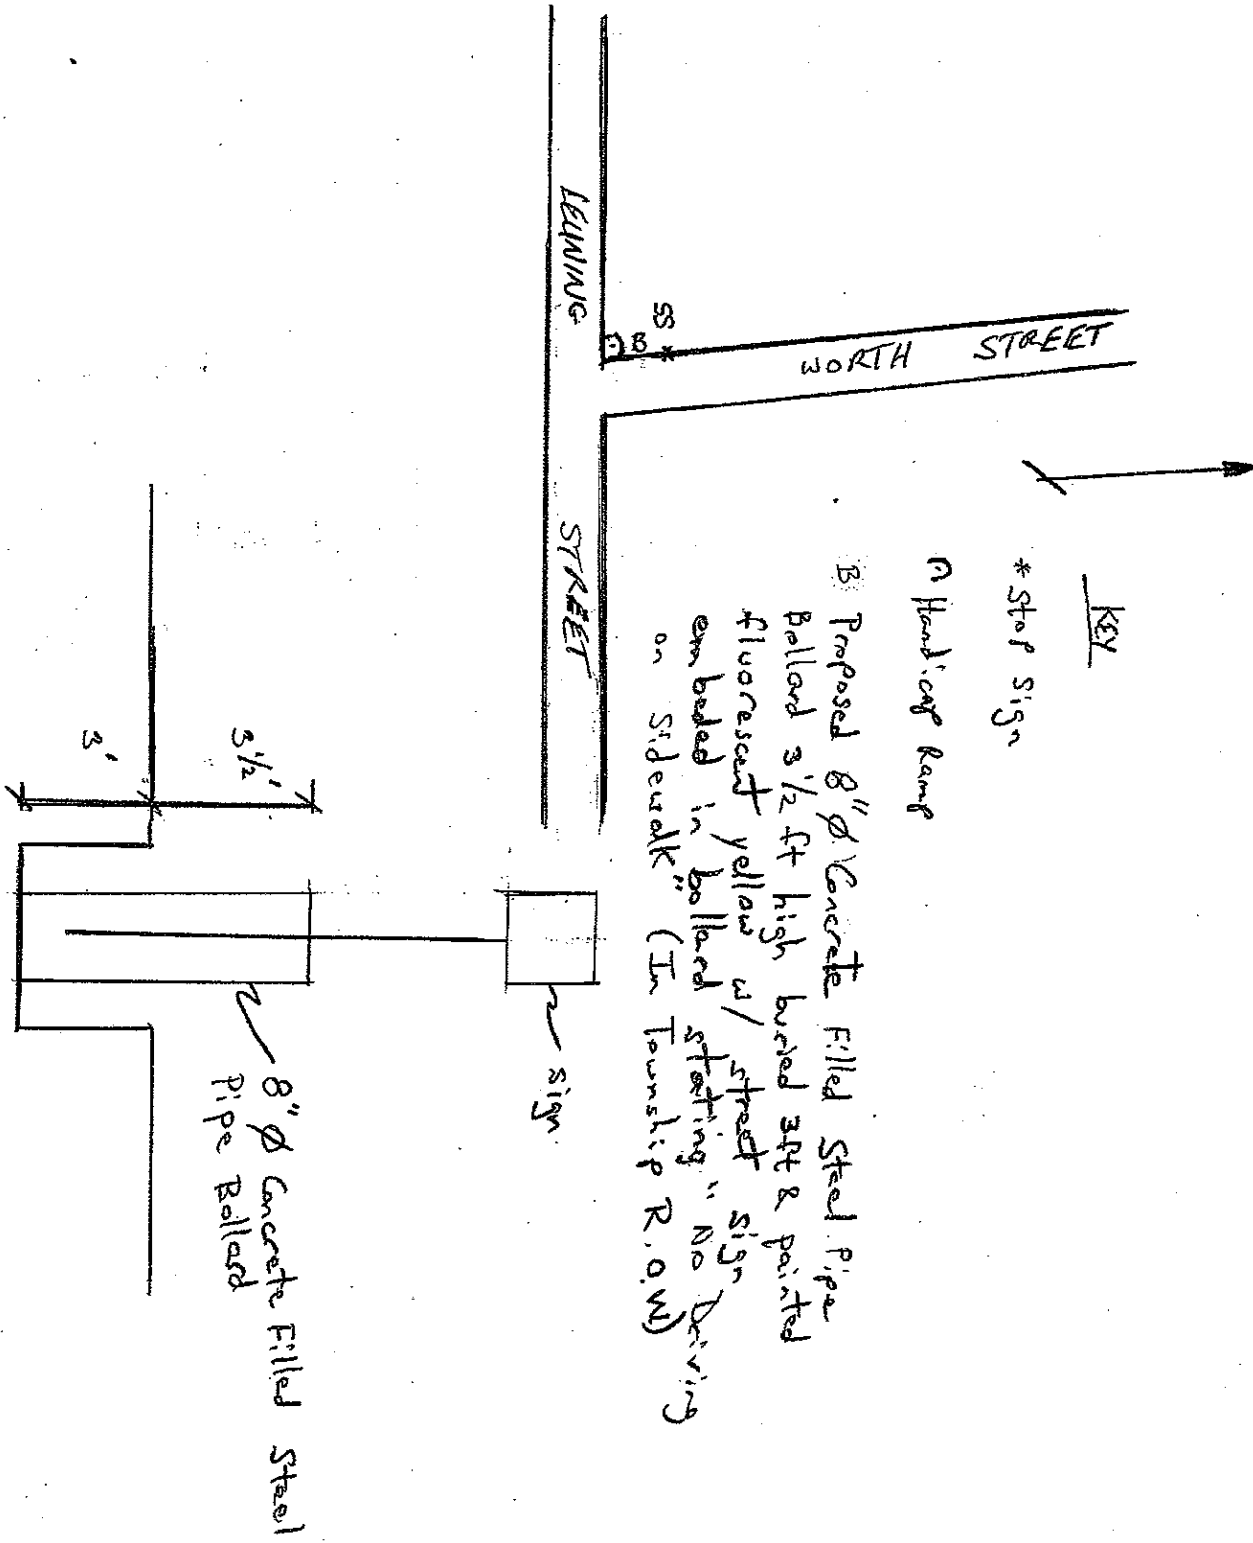 LEUNING STREET
WORTH STREET
SS
*
B
KEY
* Stop Sign
Handicap Ramp
B Proposed 8" Ø Concrete Filled Steel Pipe
Bollard 3 1/2 ft high buried 3ft & painted
fluorescent yellow w/ street sign
embaded in bollard stating "No Driving
on Sidewalk" (In Township R.O.W)
Sign
3 1/2'
3'
8" Ø Concrete Filled Steel
Pipe Bollard